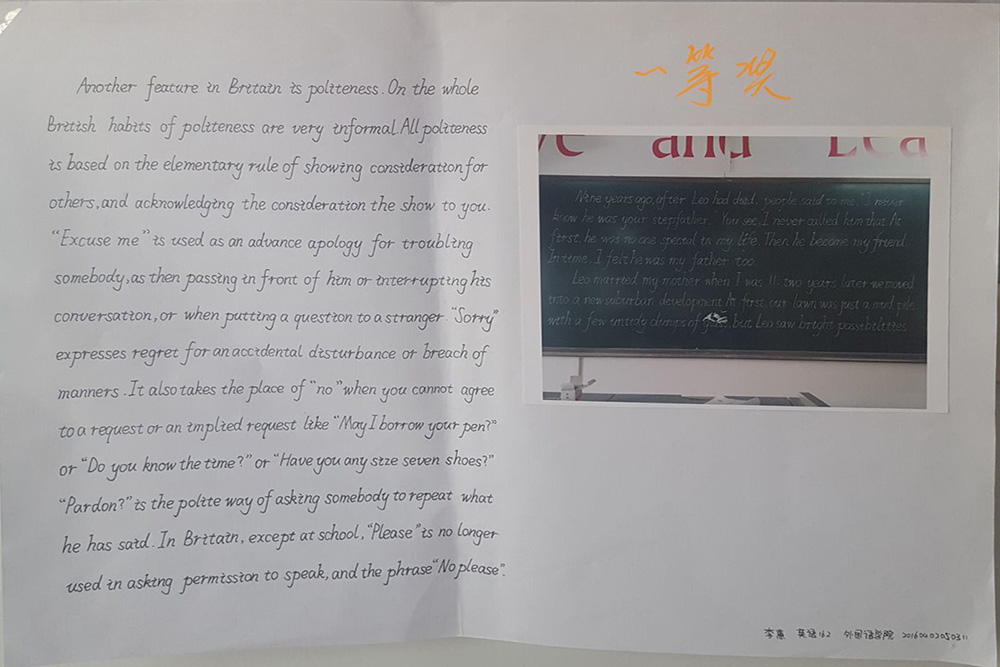 Another feature in Britain is politeness. On the whole
British habits of politeness are very informal. All politeness
is based on the elementary rule of showing consideration for
others, and acknowledging the consideration the show to you.
"Excuse me" is used as an advance apology for troubling
somebody, as then passing in front of him or interrupting his
conversation, or when putting a question to a stranger. "Sorry"
expresses regret for an accidental disturbance or breach of
manners. It also takes the place of "no" when you cannot agree
to a request or an implied request like "May I borrow your pen?"
or "Do you know the time?" or "Have you any size seven shoes?"
"Pardon?" is the polite way of asking somebody to repeat what
he has said. In Britain, except at school, "Please" is no longer
used in asking permission to speak, and the phrase "No please".
一等奖
ve and Lea
Nine years ago, after Leo had died, people said to me, "I never
know he was your stepfather." You see, I never called him that. At
first, he was no one special in my life. Then he become my friend.
In time, I felt he was my father too.
Leo married my mother when I was 11. two years later we moved
into a new suburban development. At first, our lawn was just a mud pile
with a few untidy clumps of but Leo saw bright possibilities
李惠 英语162 外国语学院 20160402050311